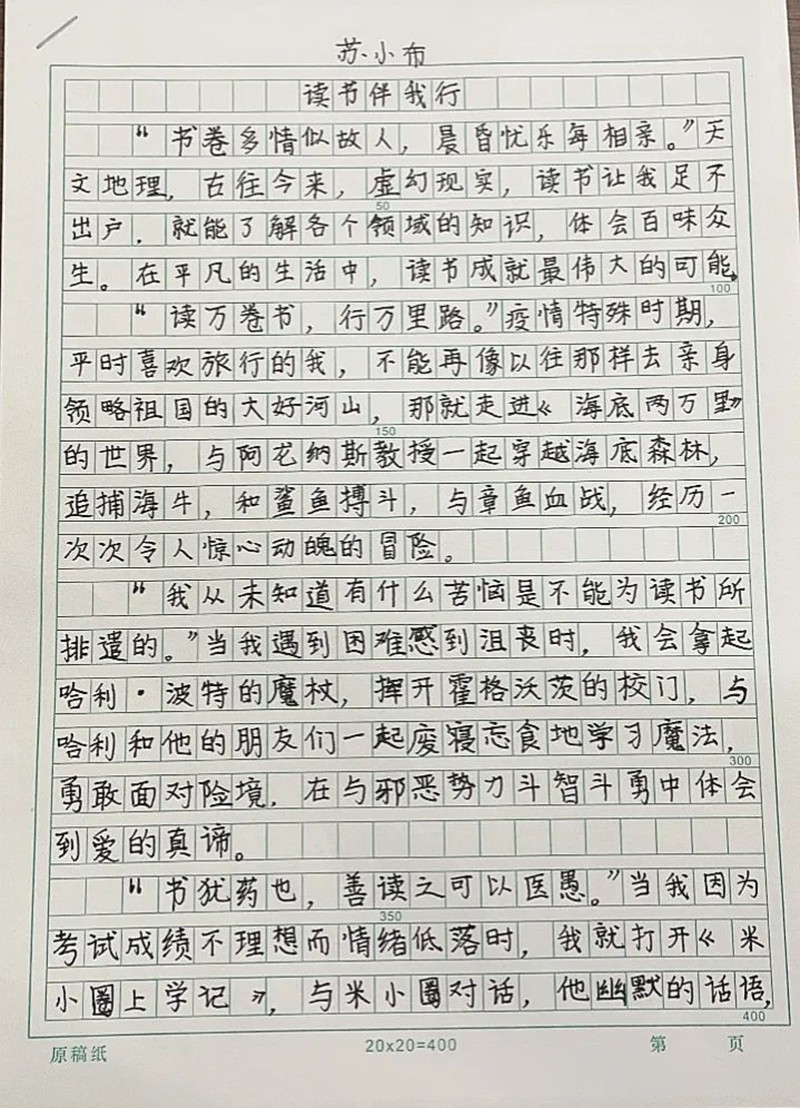 苏小布
读书伴我行
“书卷多情似故人，晨昏忧乐每相亲。”天
文地理，古往今来，虚幻现实，读书让我足不
50
出户，就能了解各个领域的知识，体会百味众
生。在平凡的生活中，读书成就最伟大的可能。
100
“读万卷书，行万里路。”疫情特殊时期，
平时喜欢旅行的我，不能再像以往那样去亲身
领略祖国的大好河山，那就走进《海底两万里》
150
的世界，与阿龙纳斯教授一起穿越海底森林，
追捕海牛，和鲨鱼搏斗，与章鱼血战，经历一
200
次次令人惊心动魄的冒险。
“我从未知道有什么苦恼是不能为读书所
排遣的。”当我遇到困难感到沮丧时，我会拿起
哈利·波特的魔杖，挥开霍格沃茨的校门，与
哈利和他的朋友们一起废寝忘食地学习魔法，
300
勇敢面对险境，在与邪恶势力斗智斗勇中体会
到爱的真谛。
“书犹药也，善读之可以医愚。”当我因为
350
考试成绩不理想而情绪低落时，我就打开《米
小圈上学记》，与米小圈对话，他幽默的话语，
400
原稿纸 20x20=400 第 页